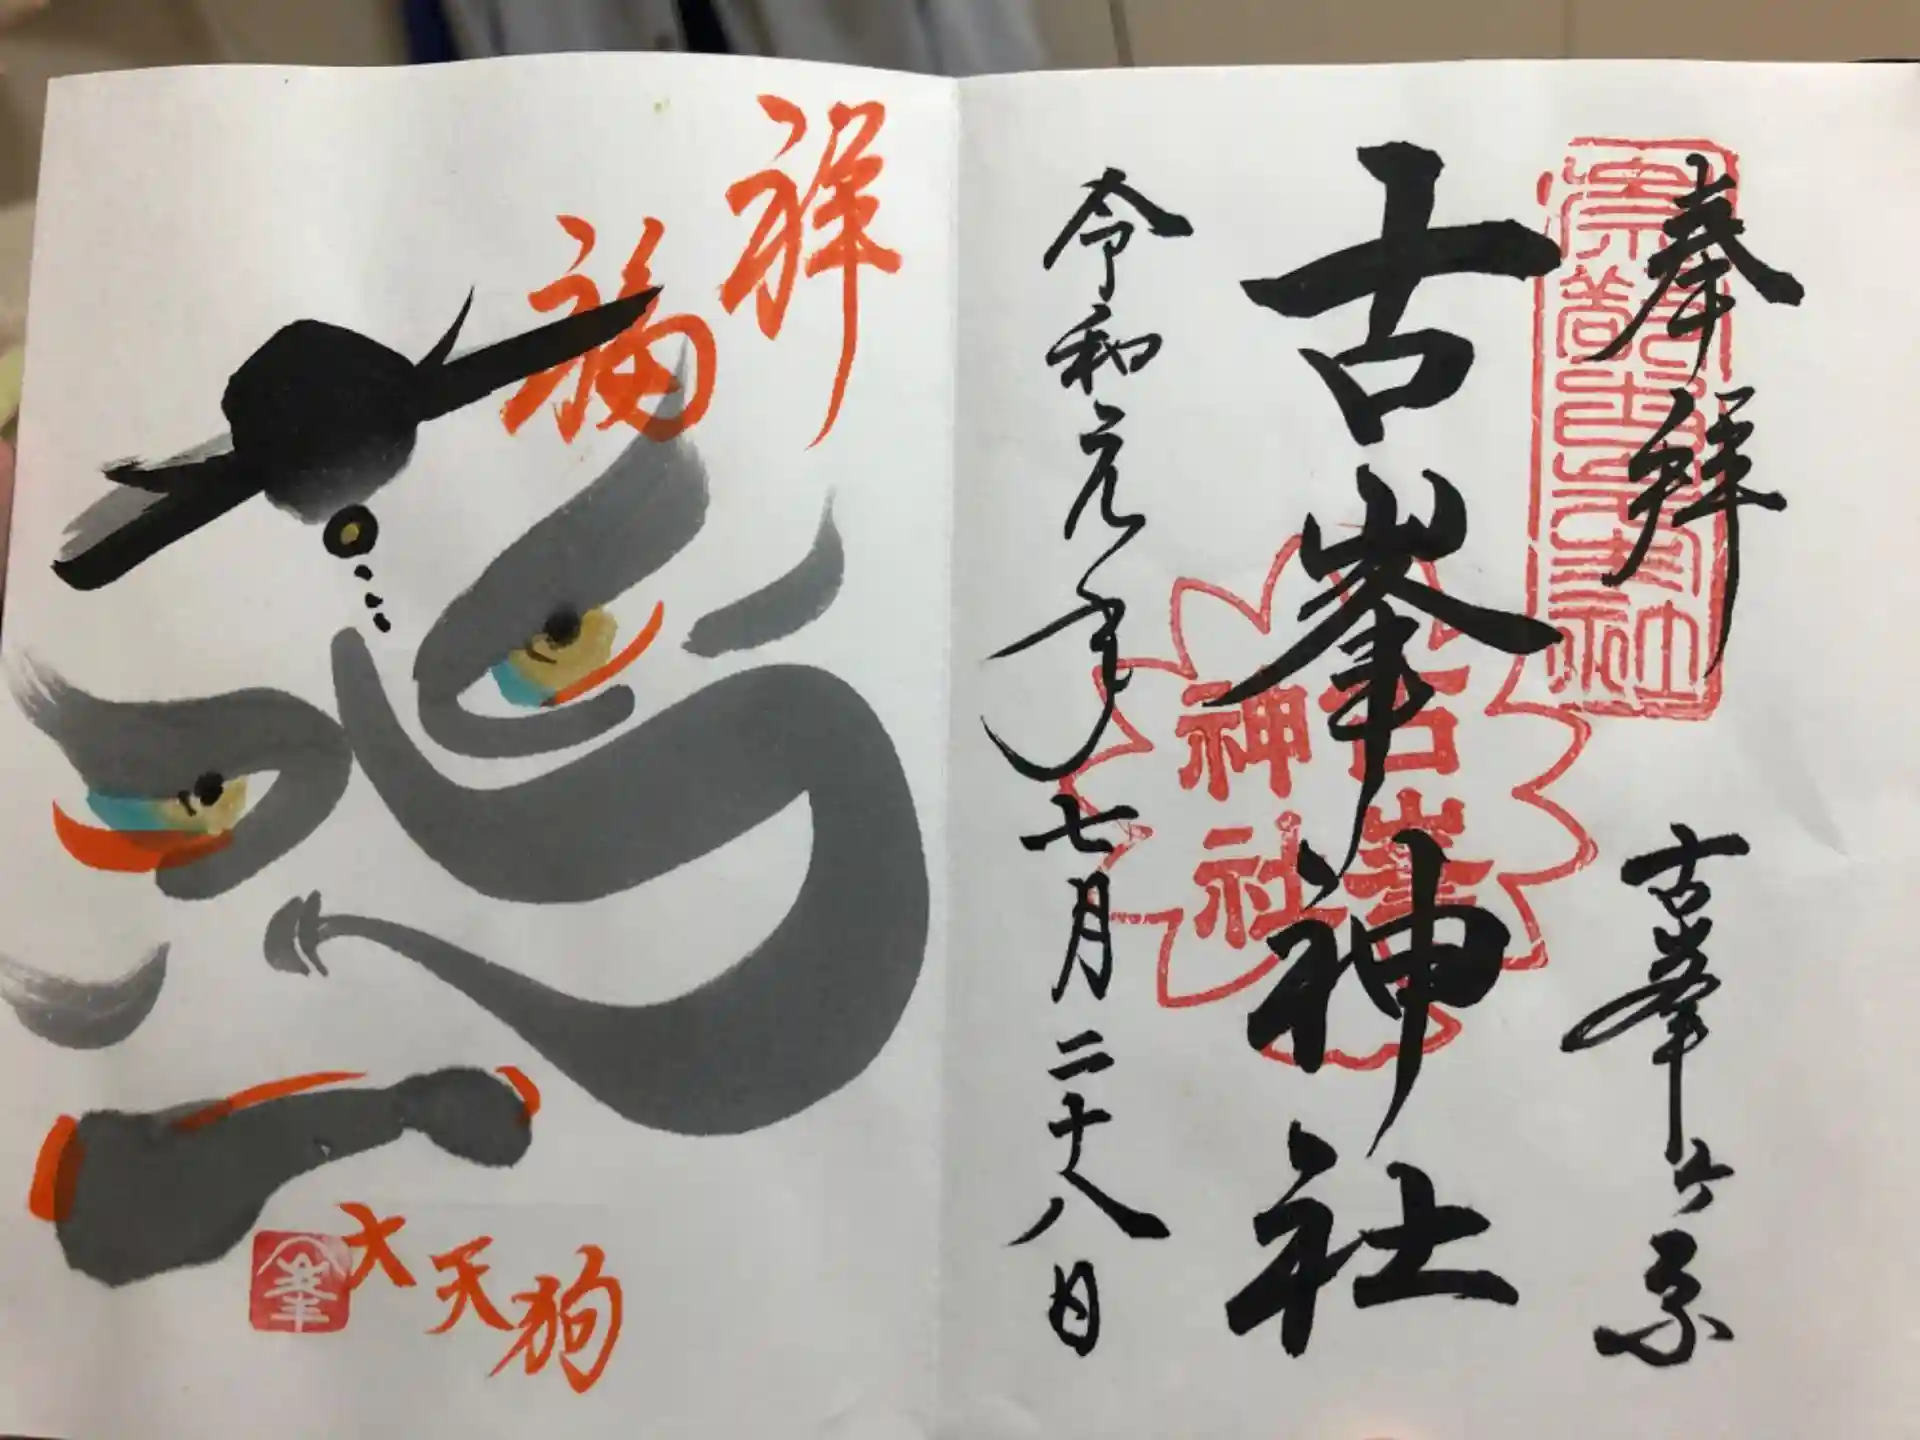 奉拝
古峯ヶ原
古峯神社
古峯
神社
令和元年七月二十八日
祥
福
大天狗
峯